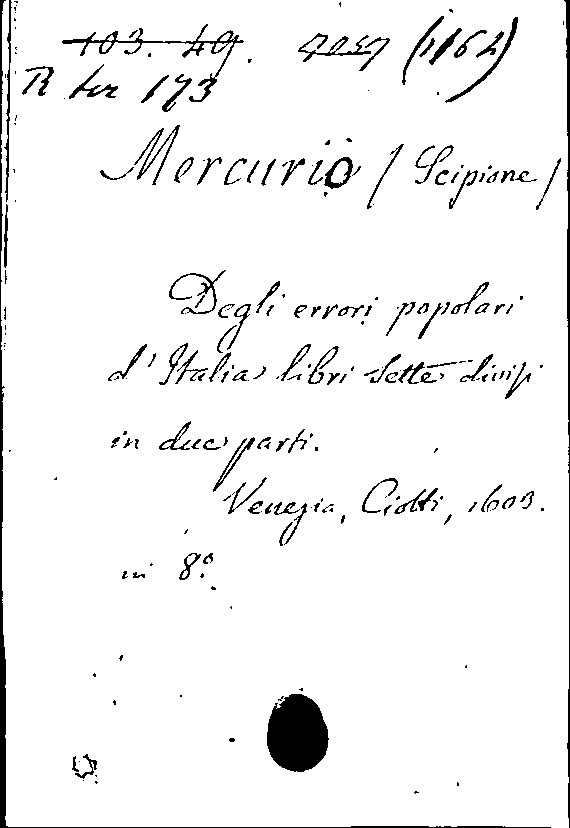 103. 49. 7057 (1162)
R ter 173
Mercurio / Scipione /
Degli errori popolari
d'Italia libri sette divisi
in due parti.
Venezia, Ciotti, 1603.
in 8º.